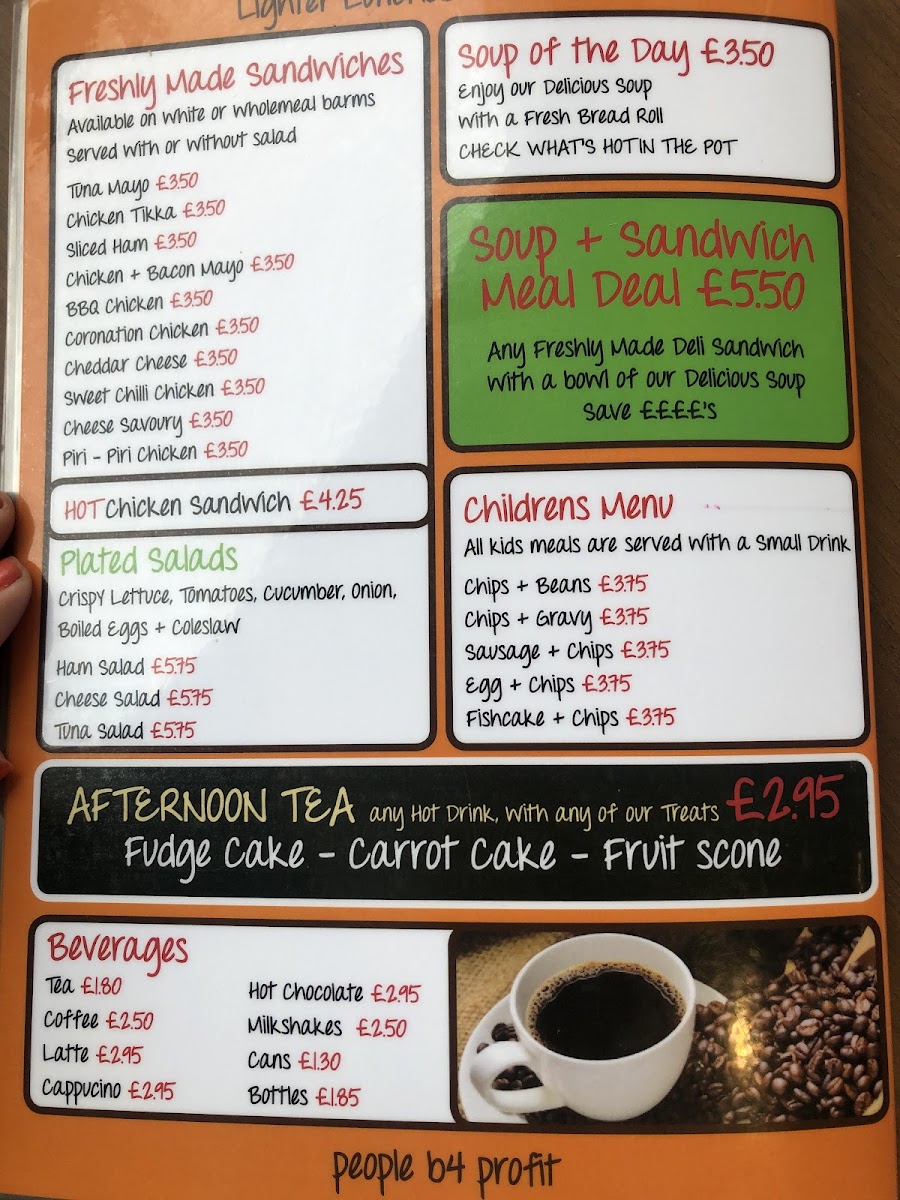 Lighter
Freshly Made Sandwiches
Available on white or wholemeal barms
served with or without salad
Tuna Mayo £3.50
Chicken Tikka £3.50
Sliced Ham £3.50
Chicken + Bacon Mayo £3.50
BBQ Chicken £3.50
Coronation Chicken £3.50
Cheddar Cheese £3.50
Sweet Chilli Chicken £3.50
Cheese Savoury £3.50
Piri - Piri Chicken £3.50
HOT Chicken Sandwich £4.25
Plated Salads
Crispy Lettuce, Tomatoes, Cucumber, Onion,
Boiled Eggs + Coleslaw
Ham Salad £5.75
Cheese Salad £5.75
Tuna Salad £5.75
Soup of the Day £3.50
Enjoy our Delicious Soup
with a Fresh Bread Roll
CHECK WHAT'S HOT IN THE POT
Soup + Sandwich
Meal Deal £5.50
Any Freshly Made Deli Sandwich
with a bowl of our Delicious Soup
Save ££££'s
Childrens Menu
All kids meals are served with a Small Drink
Chips + Beans £3.75
Chips + Gravy £3.75
Sausage + Chips £3.75
Egg + Chips £3.75
Fishcake + Chips £3.75
AFTERNOON TEA any Hot Drink, with any of our Treats £2.95
Fudge Cake - Carrot Cake - Fruit Scone
Beverages
Tea £1.80
Coffee £2.50
Latte £2.95
Cappucino £2.95
Hot Chocolate £2.95
Milkshakes £2.50
Cans £1.30
Bottles £1.85
people b4 profit